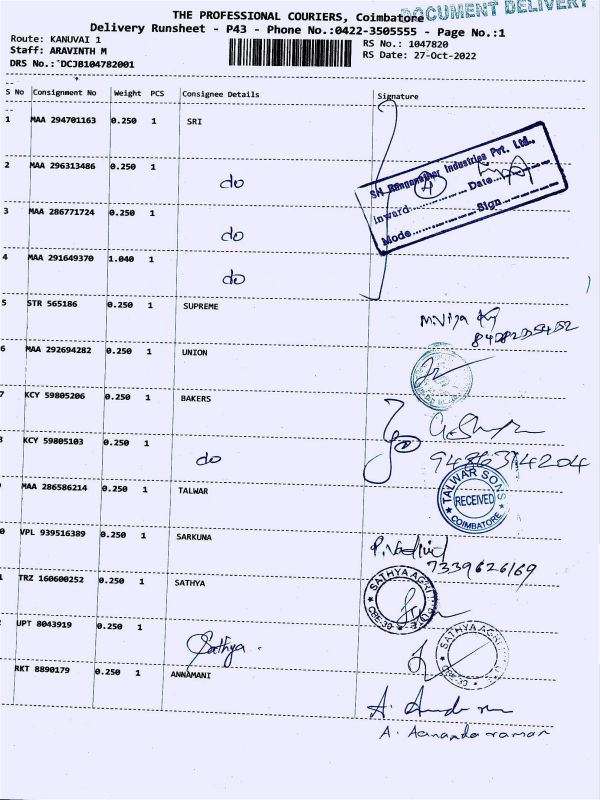 DOCUMENT DELIVERY
THE PROFESSIONAL COURIERS, Coimbatore
Delivery Runsheet - P43 - Phone No.:0422-3505555 - Page No.:1
Route: KANUVAI 1
Staff: ARAVINTH M
DRS No.: DCJB104782001
RS No.: 1047820
RS Date: 27-Oct-2022
S No Consignment No Weight PCS Consignee Details Signature
1 MAA 294701163 0.250 1 SRI
Industries Pvt. Ltd.,
Inward Date
Mode Sign
2 MAA 296313486 0.250 1 do
3 MAA 286771724 0.250 1 do
4 MAA 291649370 1.040 1 do
5 STR 565186 0.250 1 SUPREME
6 MAA 292694282 0.250 1 UNION
7 KCY 59805206 0.250 1 BAKERS
8 KCY 59805103 0.250 1 do
MAA 286586214 0.250 1 TALWAR
TALWAR SONS
RECEIVED
COIMBATORE
0 VPL 939516389 0.250 1 SARKUNA
7339626169
1 TRZ 160600252 0.250 1 SATHYA
SATHYA AGRI
CBE-30
2 UPT 8043919 0.250 1 Sathya
SATHYA AGRI
CBE-30
RKT 8890179 0.250 1 ANNAMANI